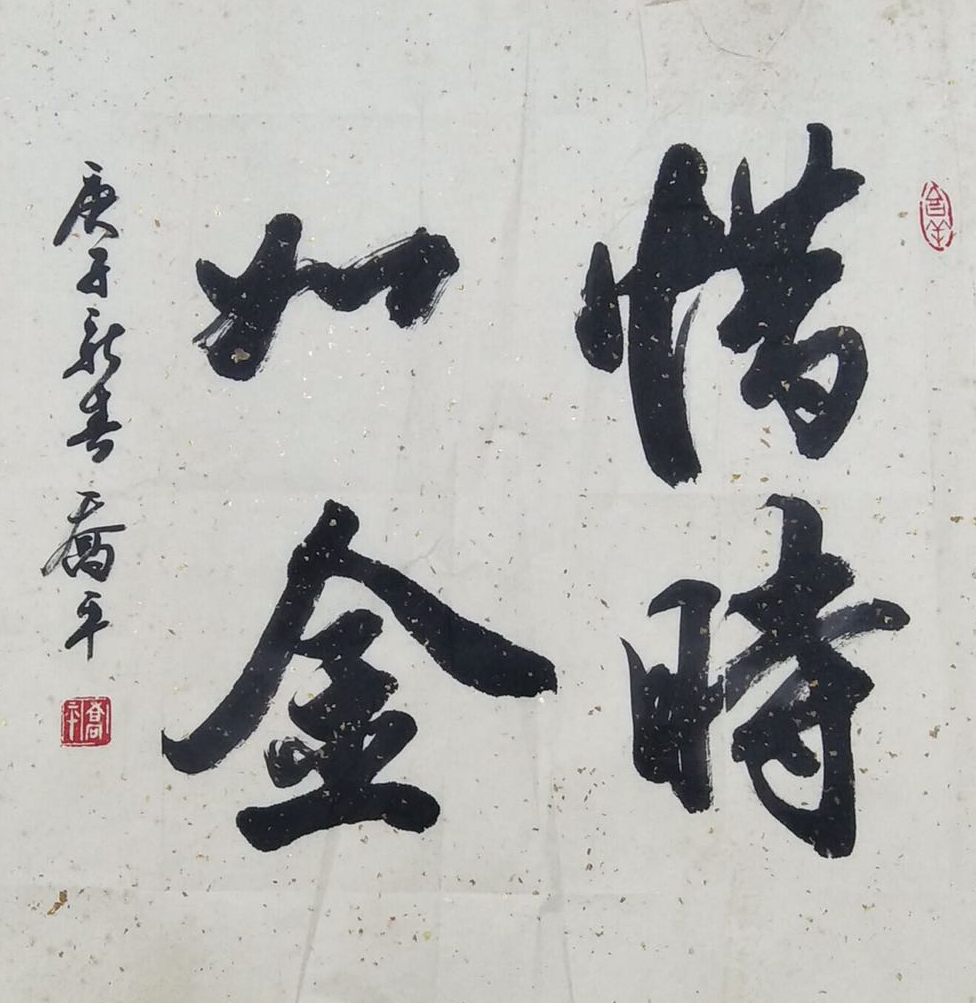 惜時
如金
庚子新春 喬平
喬平